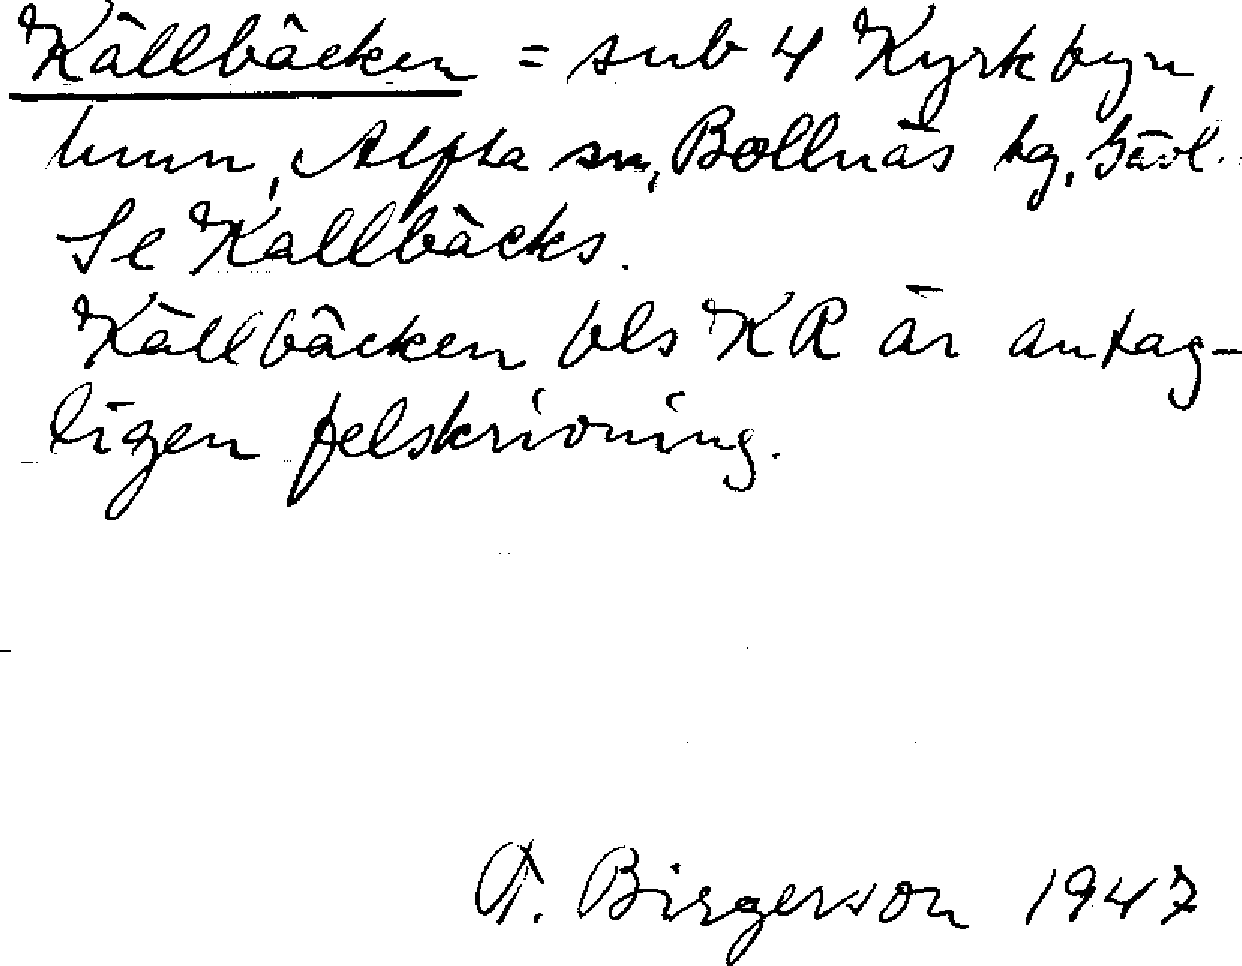 Källbäcken = sub 4 Kyrkbyn,
hmn, Alfta sn, Bollnäs tg, Gävl.
Se Kallbäcks.
Källbäcken bls KR är antag-
ligen felskrivning.
Birgerson 1947